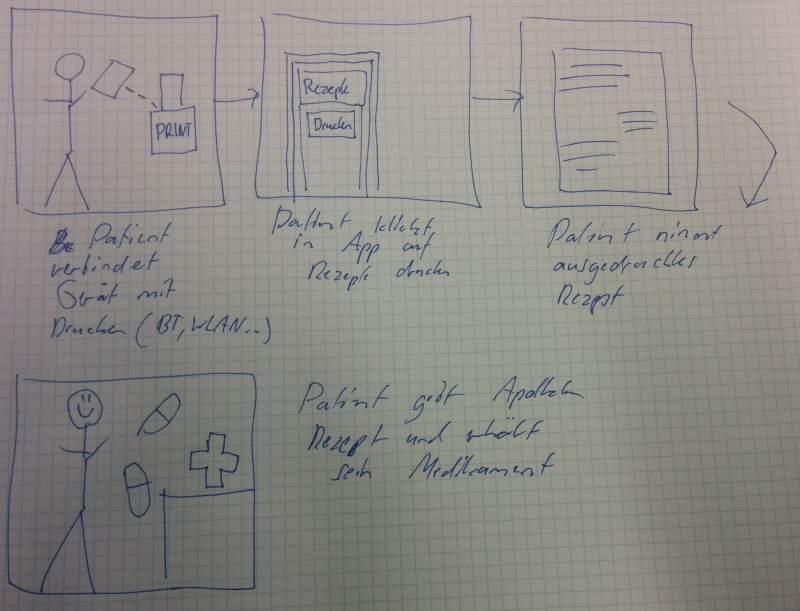 PRINT
Patient
verbindet
Gerät mit
Drucker (BT, WLAN..)
Rezepte
Drucken
Patient klickt
in App auf
Rezepte drucken
Patient nimmt
ausgedrucktes
Rezept
Patient gibt Apotheker
Rezept und erhält
sein Medikament